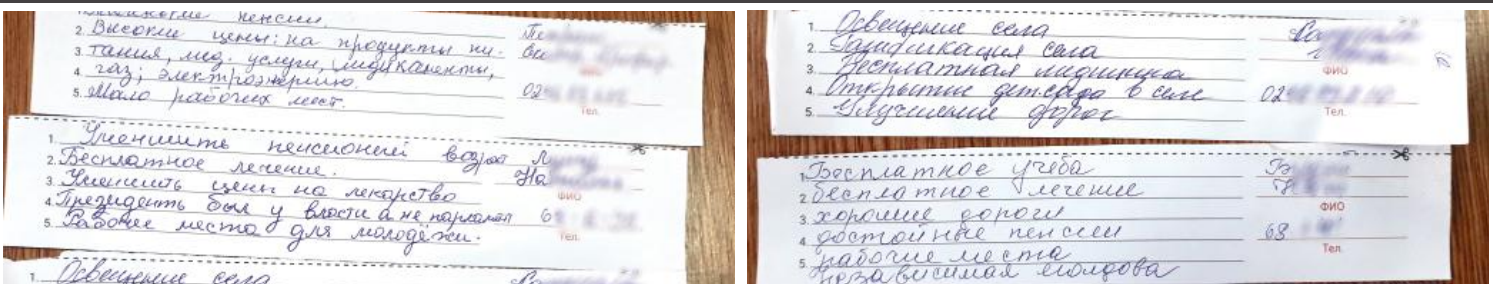 1. Маленькие пенсии.
2. Высокие цены: на продукты пи-
3. тания, мед. услуги, медикаменты,
4. газ; электроэнергию.
5. Мало рабочих мест.
ФИО
02
Тел.
1. Уменшить пенсионый возраст
2. Бесплатное лечение.
3. Уменшить цены на лекарство
4. Президенть был у власти а не парламент
5. Рабочее места для молодёжи.
На
ФИО
6
Тел.
1. Освещение села
1. Освещение села
2. Газификация села
3. Бесплатная медицина
4. Открытие дет.сада в селе
5. Улучшение дорог
ФИО
02
Тел.
1. Бесплатное учёба
2. бесплатное лечение
3. хорошие дороги
4. достойные пенсии
5. рабочие места
независимая молдова
ФИО
68
Тел.